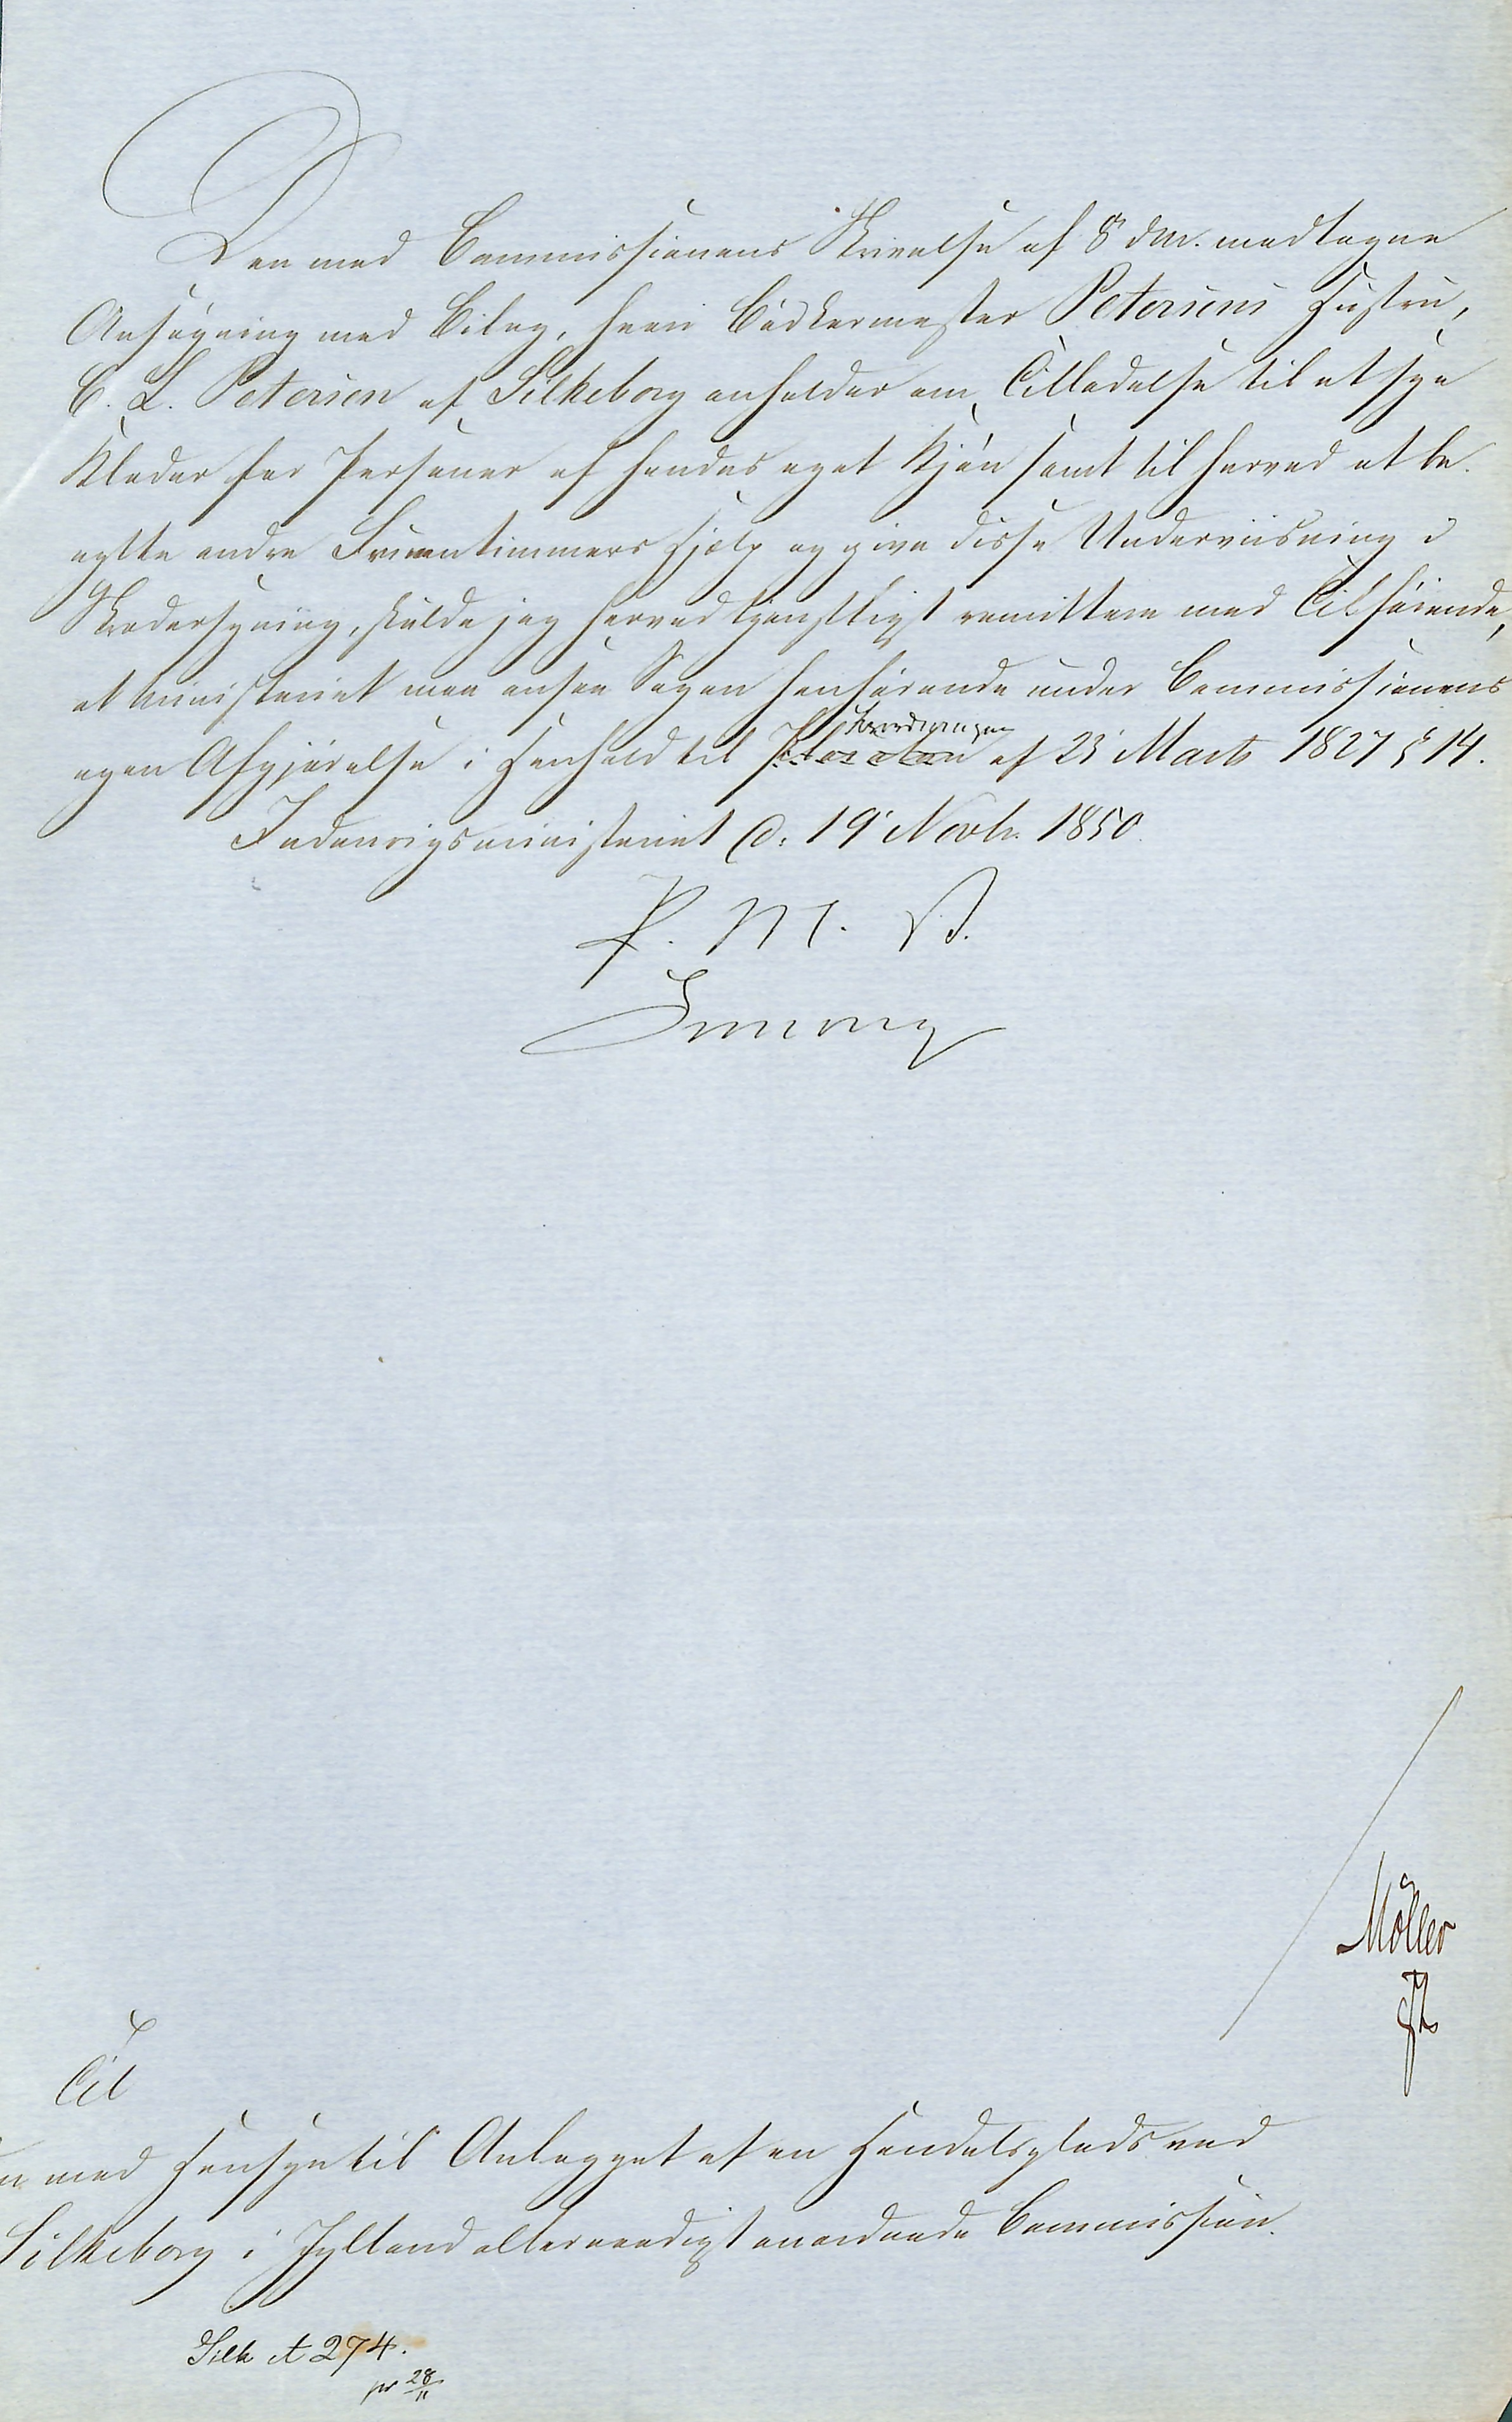 Den med Commissionens Skrivelse af 8 dM. modtagne
Ansøgning med Bilag, hvori Bødkermester Petersens Hustru,
C. L. Petersen af Silkeborg anholder om Tilladelse til at sye
Klæder for Personer af hendes eget Kjøn samt til herved at be-
nytte andre Fruentimmers Hjælp og give disse Underviisning i
Skrædersyning, skulde jeg herved tjenstligst remittere med Tilføiende,
at Ministeriet maa ansee Sagen henhørende under Commissionens
egen Afgjørelse i Henhold til Forordningen af 23 Marts 1827 § 14.
Indenrigsministeriet d. 19 Novbr. 1850.
P. M. V.
Simony
Møller
Til
den med Hensyn til Anlægget af en Handelsplads ved
Silkeborg i Jylland allernaadigst anordnede Commission.
Silk A 274.
pr 28/11